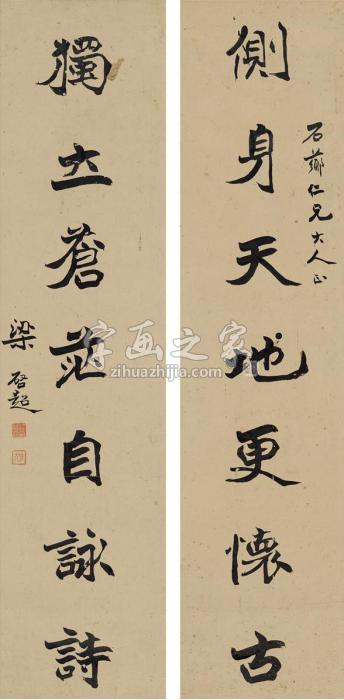 石薌仁兄大人正
側身天地更懷古
獨立蒼茫自詠詩
梁啓超
字画之家
zihuazhijia.com